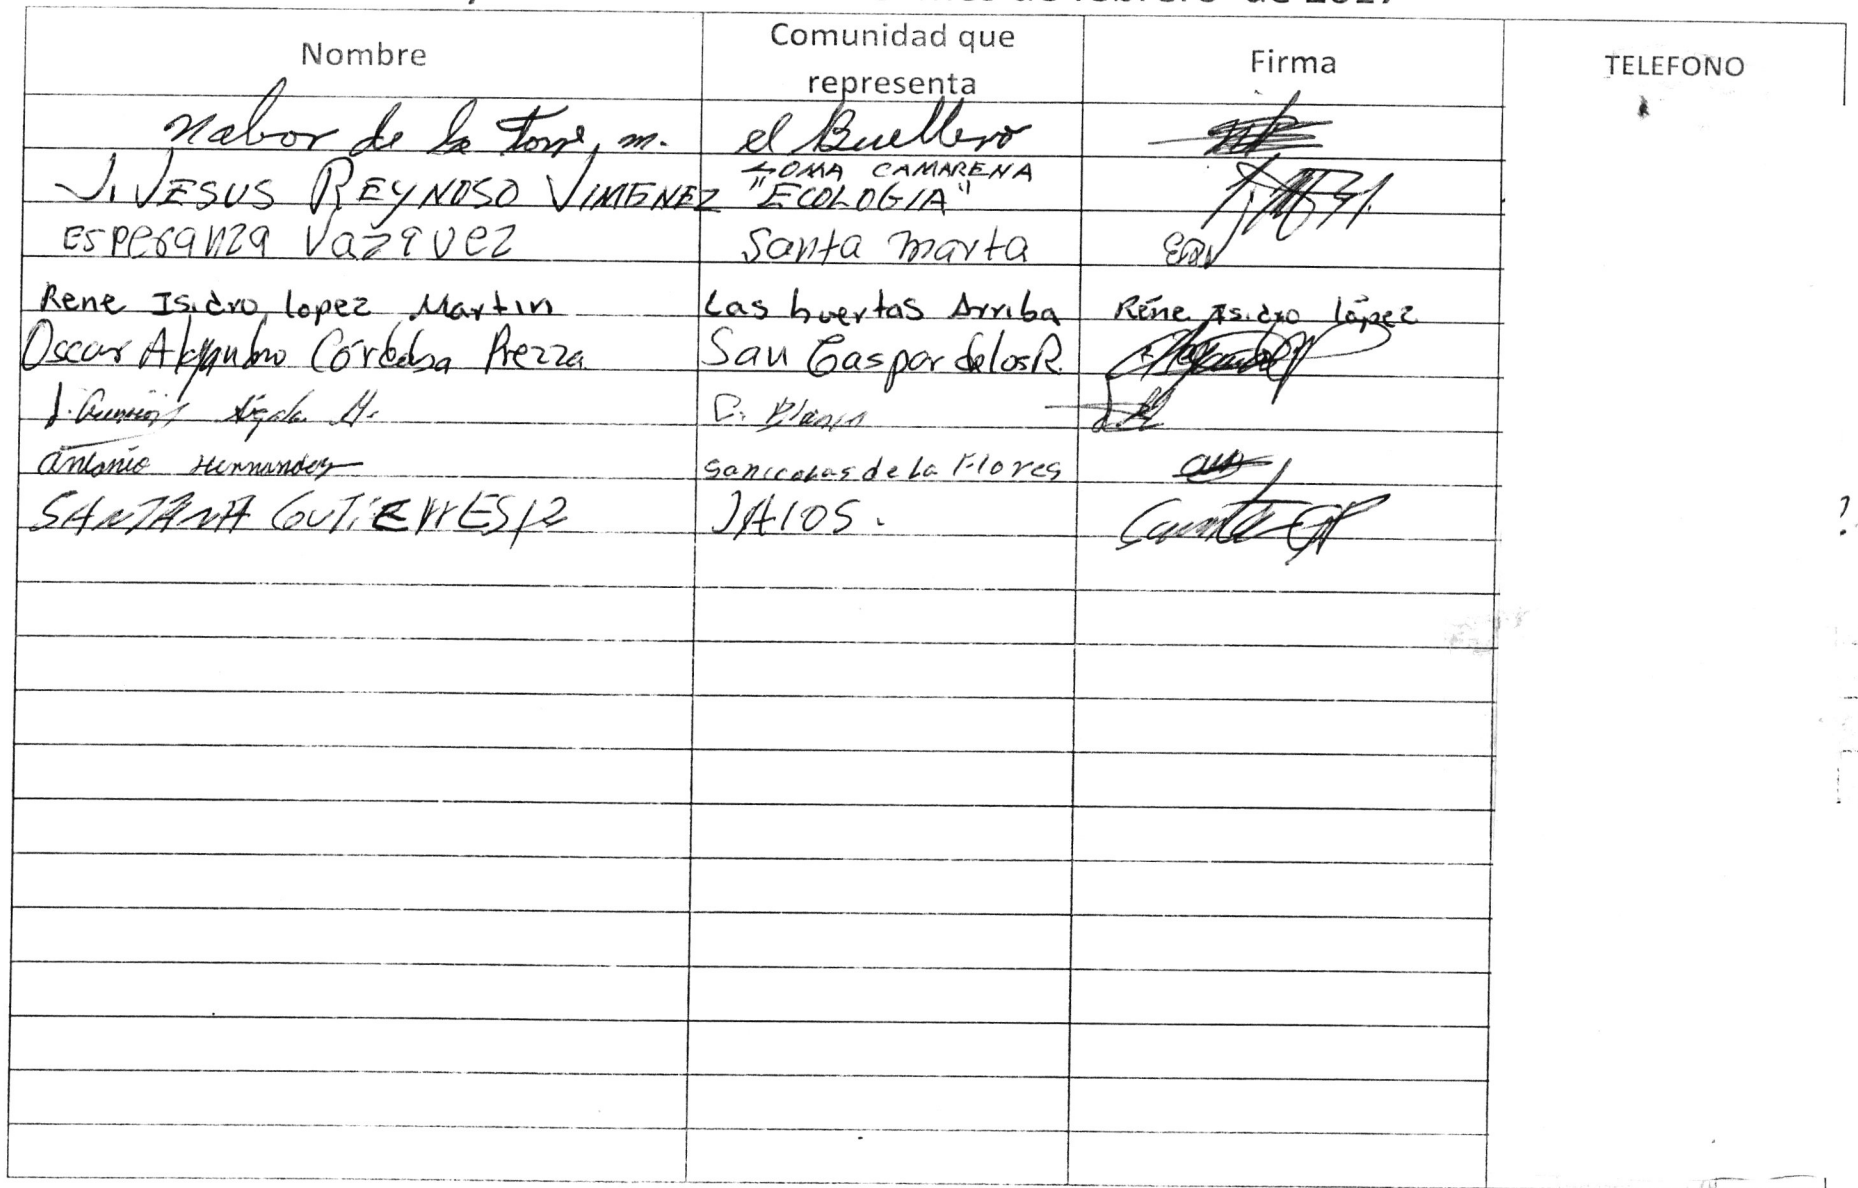 de febrero de 2017
Nombre
Comunidad que representa
Firma
TELEFONO
Nabor de la Torre, m. el Buellero
J. JESUS REYNOSO JIMENEZ LOMA CAMARENA "ECOLOGIA"
ESPERANZA Vazquez Santa Marta
Rene Isidro lopez Martin Las huertas Arriba Rene Isidro lopez
Oscar Alejandro Córdoba Prezza San Gaspar de los R.
J. M. C. Blanco
Antonio Hernandez San icolas de La Flores
SANTANA GUTIERRES JAlOS.